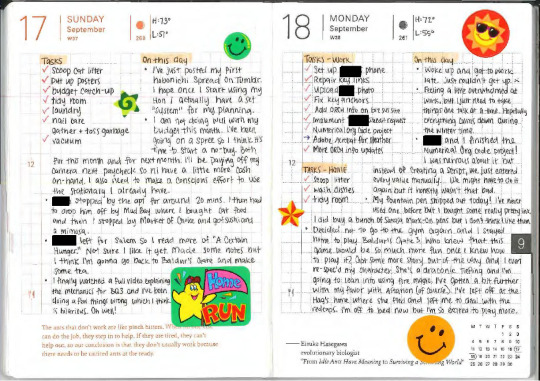 17 SUNDAY
September
W37
H: 73°
L: 51°
TASKS
✓ Scoop cat litter
✓ put up posters
✓ budget catch-up
✓ tidy room
✓ laundry
✓ nail care
gather + toss garbage
✓ vacuum
On this day
• I've just posted my first
Hobonichi Spread on Tumblr.
I hope once I start using my
Hon I actually have a set
"system" for my planning.
• I am not doing well with my
budget this month. I've been
going on a spree so I think it's
time to start a no-buy. Both
12
for this month and for next month. I'll be paying off my
camera next paycheck so I'll have a little more cash
on-hand. I also need to make a conscious effort to use
the stationery I already have.
• stopped by the apt for around 20 mins. I then had
to drop him off by Mud Bay where I bought cat food
and then I stopped by Market of Choice and got sushi and
a mimosa.
• left for Salem so I read more of "A Certain
Hunger." Not sure I like it yet. Made some notes but
I think I'm gonna go back to Baldur's Gate and make
some tea.
• I finally watched a full video explaining
the mechanics for BG3 and I've been
doing a few things wrong which I think
is hilarious. Oh well!
Home
RUN
The ants that don't work are like pinch hitters. When
can do the job, they step in to help. If they are tired, they can't
help out, so our conclusion is that they don't usually work because
there needs to be untired ants at the ready.
18 MONDAY
September
W38
H: 72°
L: 55°
TASKS - WORK
✓ Set up phone
✓ Repair key links
✓ Upload photo
✓ Fix key anchors
✓ Implement
Numerical Org Code project
Adobe Acrobat for Mother
✓ More into updates
TASKS - HOME
✓ Scoop litter
✓ wash dishes
✓ tidy room
On this day
• Woke up and got to work
late. Just couldn't get up.
• Feeling a little overwhelmed at
work, but I just need to take
things one task at a time. Hopefully
everything calms down during
the winter time.
• and I finished the
Numerical Org Code project!
I was nervous about it but
12
instead of creating a script, we just entered
every value manually. We might need to do it
again but it honestly wasn't that bad.
• My fountain pen shipped out today! I've never
used one before but I bought some really pretty ink.
I did buy a bunch of Sarasa Mark-On pens but I don't think I like them.
• Decided not to go to the gym again and I stayed
home to play Baldur's Gate 3. Who knew that this
game would be so much more fun once I knew how
to play it? Got some more story out of the way and I even
re-spec'd my character. She's a draconic Tiefling and I'm
going to lean into using fire magic. I've gotten a bit further
with my favor with Astarion (of course). I've left off at the
Hag's home where she fled and left me to deal with the
redcaps. I'm off to bed now but I'm so excited to play more.
9
Eisuke Hasegawa
evolutionary biologist
"From Idle Ants Have Meaning to Surviving a World"
M T W T F S S